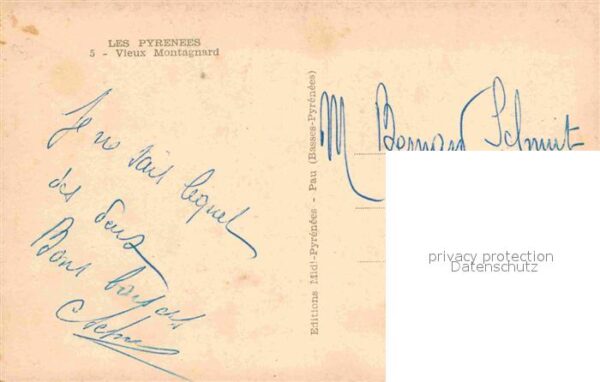 LES PYRENEES
5 - Vieux Montagnard
Je ne sais lequel
des deux
Bons baisers
Editions Midi-Pyrénées - Pau (Basses-Pyrénées)
M Bernard Schmit
privacy protection
Datenschutz